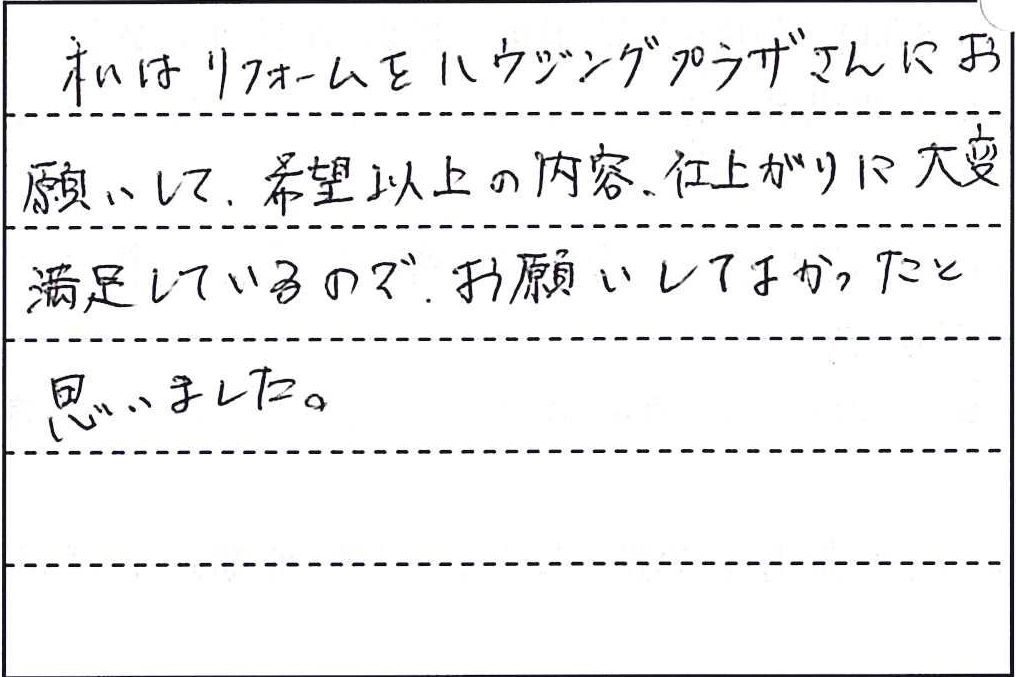 私はリフォームをハウジングプラザさんにお
願いして、希望以上の内容、仕上がりに大変
満足しているので、お願いしてよかったと
思いました。